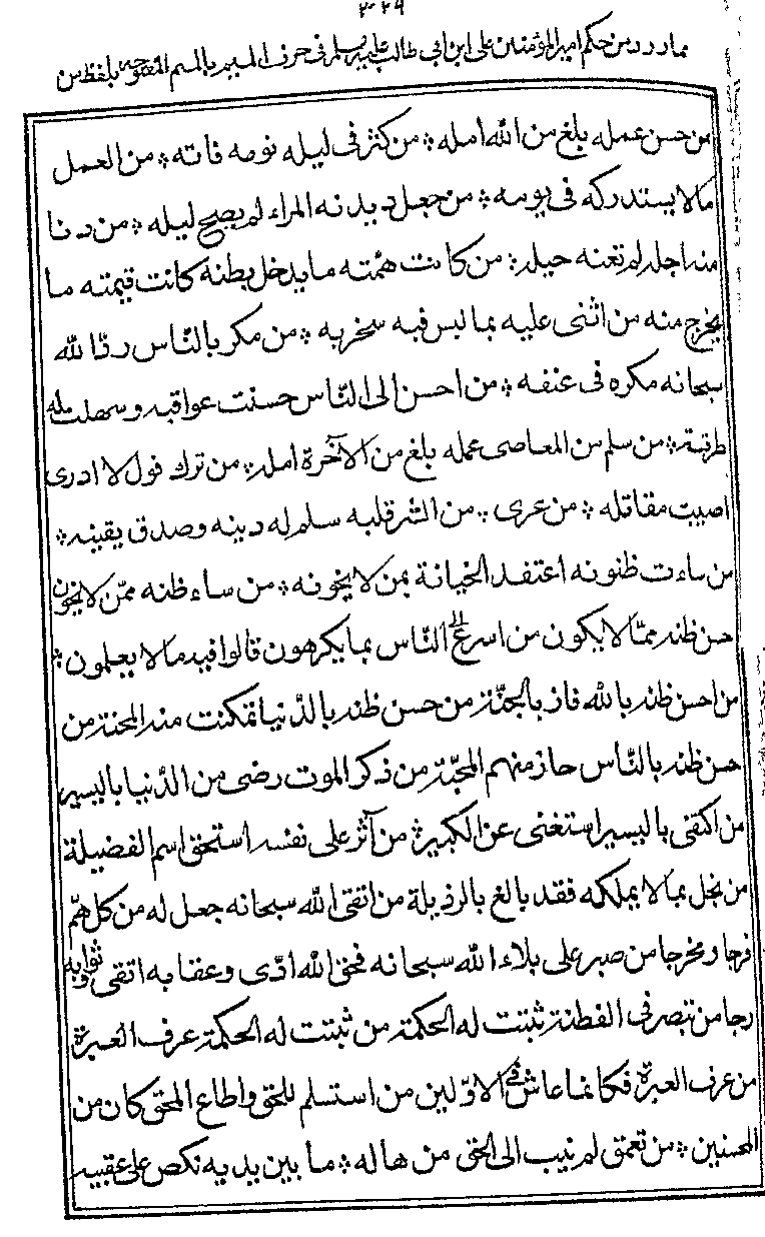 مما ورد من حكم امير المؤمنين على ابن ابى طالب عليه السلم فى حرف الميم بالميم المفتوحه بلفظ من
من حسن عمله بلغ من الله امله ؞ من كثر فى ليله نومه فاته ؞ من العمل
مالا يستدركه فى يومه ؞ من جعل ديدنه المراء لم يصبح ليله ؞ من دنا
منه اجله لم تغنه حيله ؞ من كانت همّته ما يدخل بطنه كانت قيمته ما
يخرج منه من اثنى عليه بما ليس فيه سخر به ؞ من مكر بالنّاس ردّ الله
سبحانه مكره فى عنقه ؞ من احسن الى النّاس حسنت عواقبه وسهلت له
طرقه ؞ من سلم من المعاصى عمله بلغ من الآخرة امله ؞ من ترك قول لا ادرى
اصيبت مقاتله ؞ من عرى ؞ من الشّر قلبه سلم له دينه وصدق يقينه ؞
من ساءت ظنونه اعتقد الخيانة بمن لا يخونه ؞ من ساء ظنه ممّن لا يخون
حسن ظنه ممّا لا يكون من اسرع الى النّاس بما يكرهون قالوا فيه مالا يعلمون ؞
من احسن ظنه بالله فاز بالجنّة من حسن ظنه بالدّنيا تمكنت منه المحنة من
حسن ظنه بالنّاس حاز منهم المحبّة من ذكر الموت رضى من الدّنيا باليسير
من اكتفى باليسير استغنى عن الكبير ؞ من آثر على نفسه استحق اسم الفضيلة
من بخل بما لا يملكه فقد بالغ بالرذيلة من اتقى الله سبحانه جعل له من كل همّ
فرجا ومخرجا من صبر على بلاء الله سبحانه فحق الله ادّى وعقابه اتقى وثوابه
رجا من تبصر فى الفطنة ثبتت له الحكمة من ثبتت له الحكمة عرف العبرة
من عرف العبرة فكانما عاش فى الاوّلين من استسلم للحق واطاع المحق كان من
المحسنين ؞ من تعمق لم ينيب الى الحق من هاله ؞ ما بين يديه نكص على عقبيه